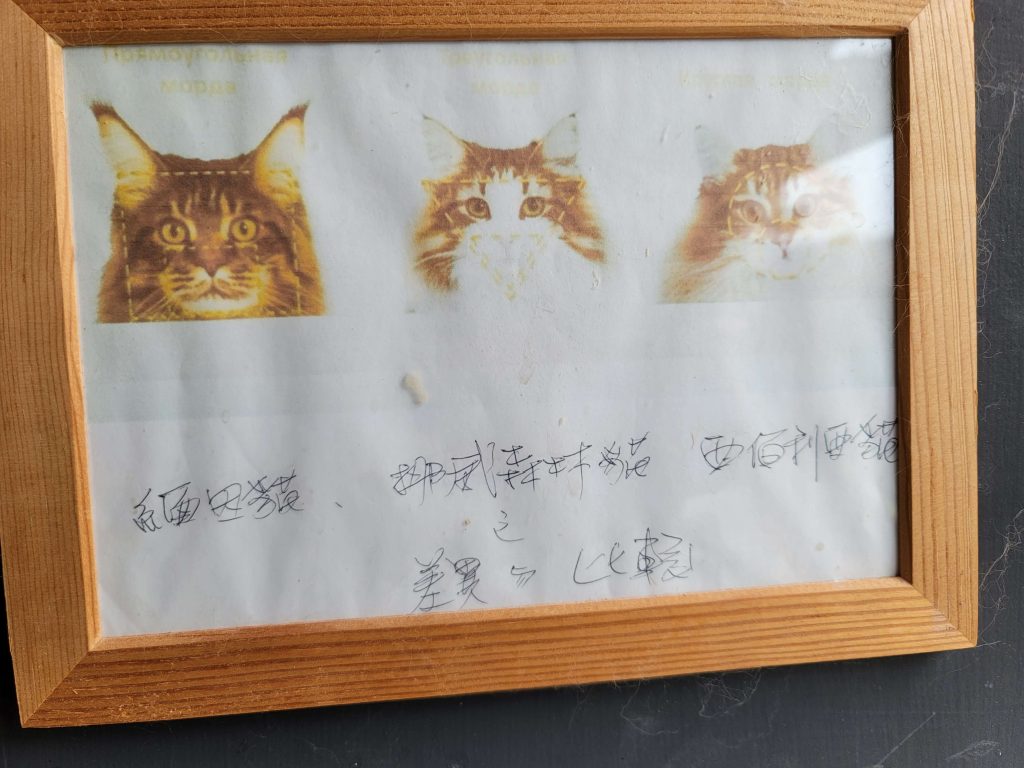 Прямоугольная
морда
Треугольная
морда
морда
緬因貓、
挪威森林貓
西伯利亞貓
之
差異與比較